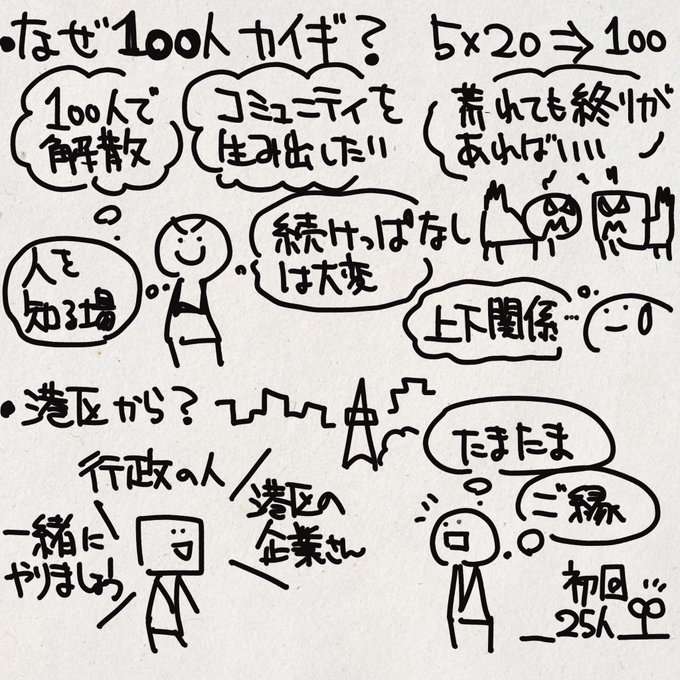 •なぜ100人カイギ?
5×20⇒100
100人で
解散
コミュニティを
生み出したい
荒れても終りが
あればいい
人を
知る場
続けっぱなし
は大変
上下関係…
•港区から?
たまたま
ご縁
行政の人
港区の
企業さん
一緒に
やりましょう
初回
25人